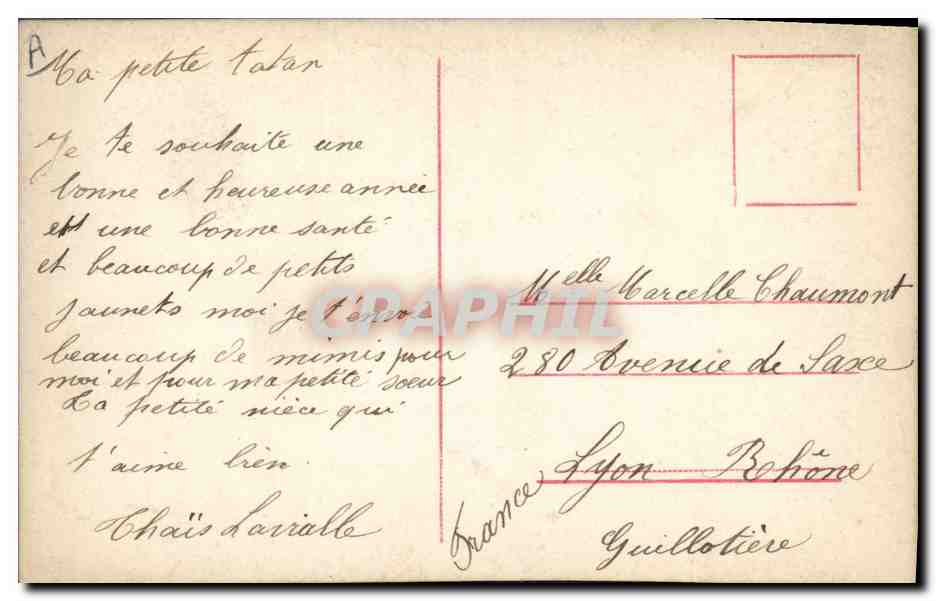 A
Ma petite tatan
Je te souhaite une
bonne et heureuse année
et une bonne santé
et beaucoup de petits
jaunets moi je t'envoie
beaucoup de mimis pour
moi et pour ma petite soeur
Ta petite nièce qui
t'aime bien.
Thaïs Lavialle
CPAPHIL
Melle Marcelle Chaumont
280 Avenue de Saxe
Lyon Rhône
France
Guillotière